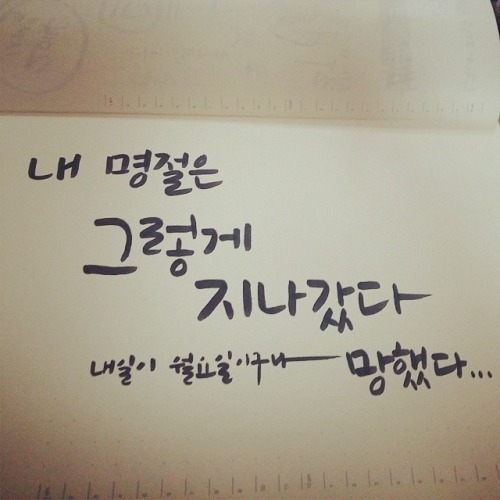 내 명절은
그렇게
지나갔다
내일이 월요일이구나 망했다...